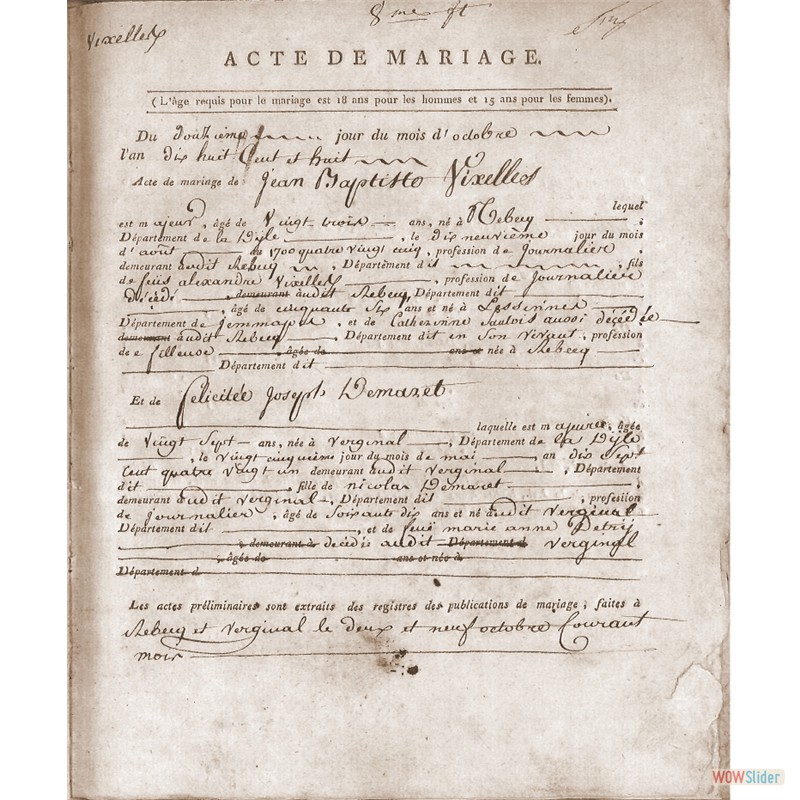 8me ft
Vixelles
ACTE DE MARIAGE.
(L'âge requis pour le mariage est 18 ans pour les hommes et 15 ans pour les femmes).
Du Douzième jour du mois d'octobre
l'an dix huit Cent et huit
Acte de mariage de Jean Baptiste Vixelles
lequel
est majeur, âgé de Vingt trois ans, né à Rebecq,
Département de la Dyle, le dix neuvième jour du mois
d'août au 1700 quatre vingt cinq, profession de Journalier,
demeurant audit Rebecq, Département dit, fils
de feus alexandre Vixelles, profession de Journalier
décédé demeurant audit Rebecq, Département dit
, âgé de cinquante Six ans et né à Lessinnes
Département de Jemmapes, et de Catherinne Saulois aussi decédée
demeurant audit Rebecq, Département dit en Son Vivant, profession
de filleuse âgée de ans et née à Rebecq
Département dit
Et de Felicitée Joseph Demaret
laquelle est majeure, âgée
de Vingt Sept ans, née à Verginal, Département de la Dyle
, le Vingt cinquième jour du mois de mai an dix Sept
Cent quatre vingt un demeurant audit Verginal, Département
dit fille de nicolas Demaret,
demeurant audit Verginal, Département dit, profession
de Journalier, âgé de Soixante dix ans et né audit Verginal
Département dit, et de feue marie anne Detrij
demeurant à decedée audit Département d Verginal
âgée de ans et née à
Département d
Les actes préliminaires sont extraits des registres des publications de mariage, faites à
Rebecq et Verginal le deux et neuf octobre Courant
mois
WOWSlider